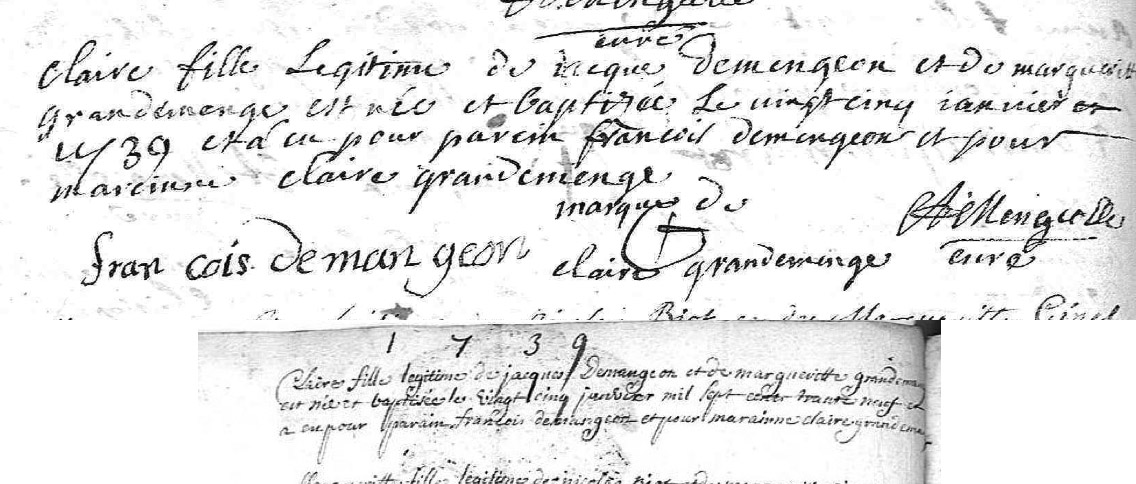 curé
claire fille Legitime de iacque demengeon et de marguerite
grandemenge est née et baptizée Le vingt cinq ianvier
1739 et a eu pour parein francois demengeon et pour
mareinne claire grandemenge
marque de
fran cois deman geon
claire grandemenge curé
1 7 3 9
Claire fille legitime de jacques Demangeon et de margueritte grandeman
est née et baptisée le vingt cinq janvier mil sept cent trante neuf et
a eu pour parain francois demangeon et pour marainne claire grandeme
fille légitime de nicolas